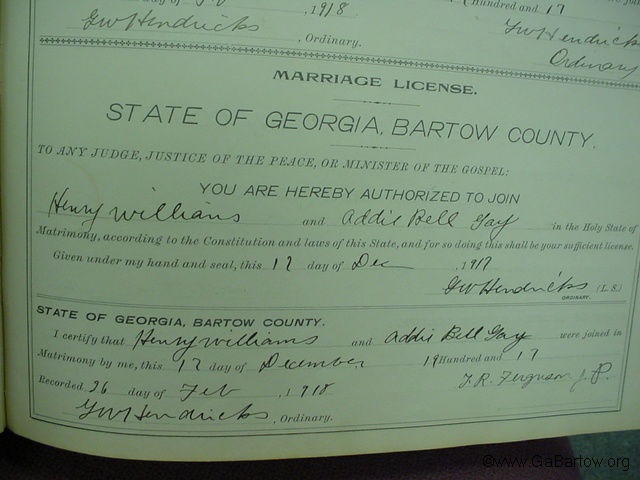 , 1918
Hundred and 17
GW Hendricks
, Ordinary.
GW Hendricks
Ordinary
MARRIAGE LICENSE.
STATE OF GEORGIA, BARTOW COUNTY.
TO ANY JUDGE, JUSTICE OF THE PEACE, OR MINISTER OF THE GOSPEL:
YOU ARE HEREBY AUTHORIZED TO JOIN
Henry Williams and Addie Bell Gay in the Holy State of
Matrimony, according to the Constitution and laws of this State, and for so doing this shall be your sufficient license.
Given under my hand and seal, this 17 day of Dec , 1917
GW Hendricks (L. S.)
ORDINARY.
STATE OF GEORGIA, BARTOW COUNTY.
I certify that Henry Williams and Addie Bell Gay were joined in
Matrimony by me, this 17 day of December 19 Hundred and 17
Recorded 26 day of Feb , 1918 J. R. Ferguson J. P.
GW Hendricks , Ordinary.
©www.GaBartow.org